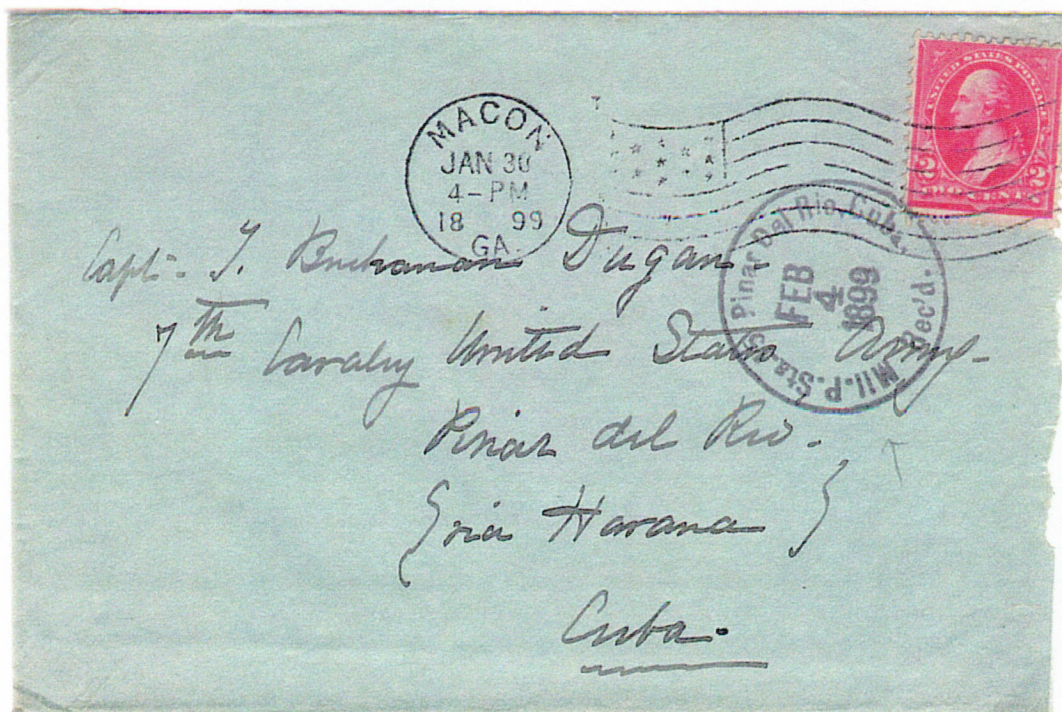 MACON
JAN 30
4-PM
18 99
GA.
UNITED STATES POSTAGE
2 2
TWO CENTS
Pinar Del Rio, Cuba.
FEB
4
1899
Rec'd.
Mil. P. Sta.
Capt. T. Buchanan Dugan -
7th Cavalry United States Army -
Pinar del Rio.
(via Havana)
Cuba.